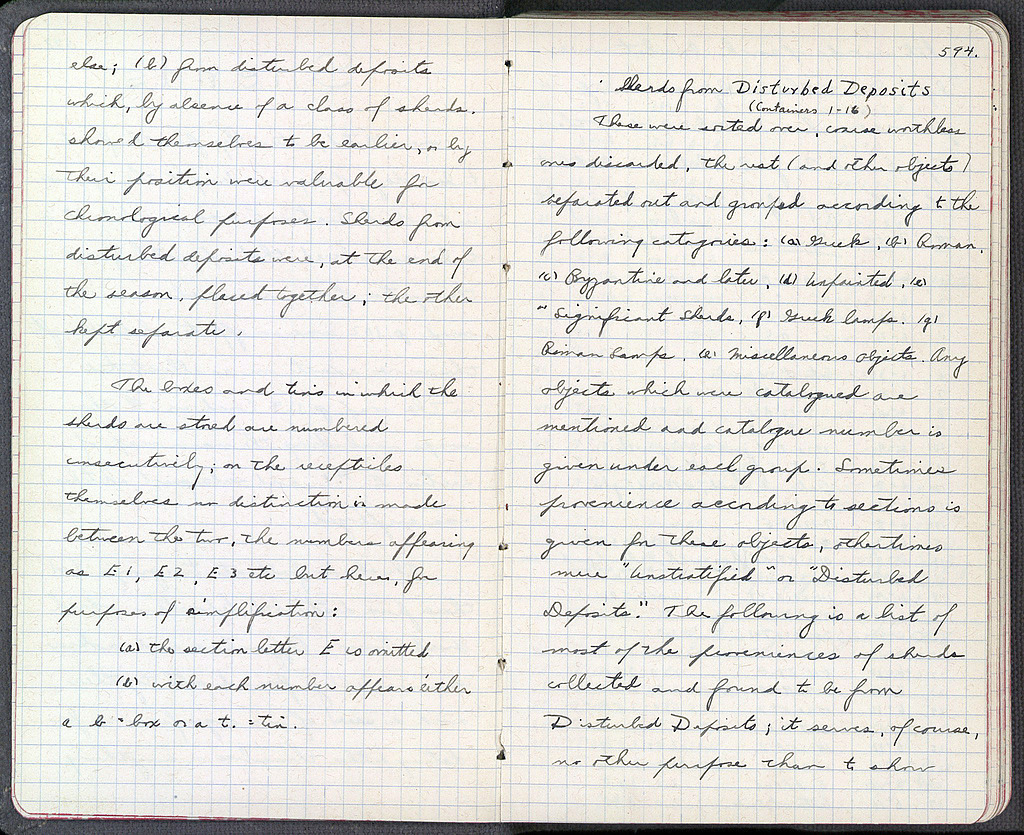 else; (b) from disturbed deposits
which, by absence of a class of sherds,
showed themselves to be earlier, or by
their position were valuable for
chronological purposes. Sherds from
disturbed deposits were, at the end of
the season, placed together; the other
kept separate.
The boxes and tins in which the
sherds are stored are numbered
consecutively; on the receptiles
themselves no distinction is made
between the two, the numbers appearing
as E1, E2, E3 etc but here, for
purposes of simplification:
(a) the section letter E is omitted
(b) with each number appears either
a b = box or a t. = tin.
594.
Sherds from Disturbed Deposits
(Containers 1-16)
These were sorted over, coarse worthless
ones discarded, the rest (and other objects)
separated out and grouped according to the
following catagories: (a) Greek, (b) Roman,
(c) Byzantine and later, (d) Unpainted, (e)
"Significant Sherds, (f) Greek lamps. (g)
Roman Lamps. (e) Miscellaneous objects. Any
objects which were catalogued are
mentioned and catalogue number is
given under each group. Sometimes
provenience according to sections is
given for these objects, othertimes
mere "Unstratified" or "Disturbed
Deposits." The following is a list of
most of the proveniences of sherds
collected and found to be from
Disturbed Deposits; it serves, of course,
no other purpose than to show